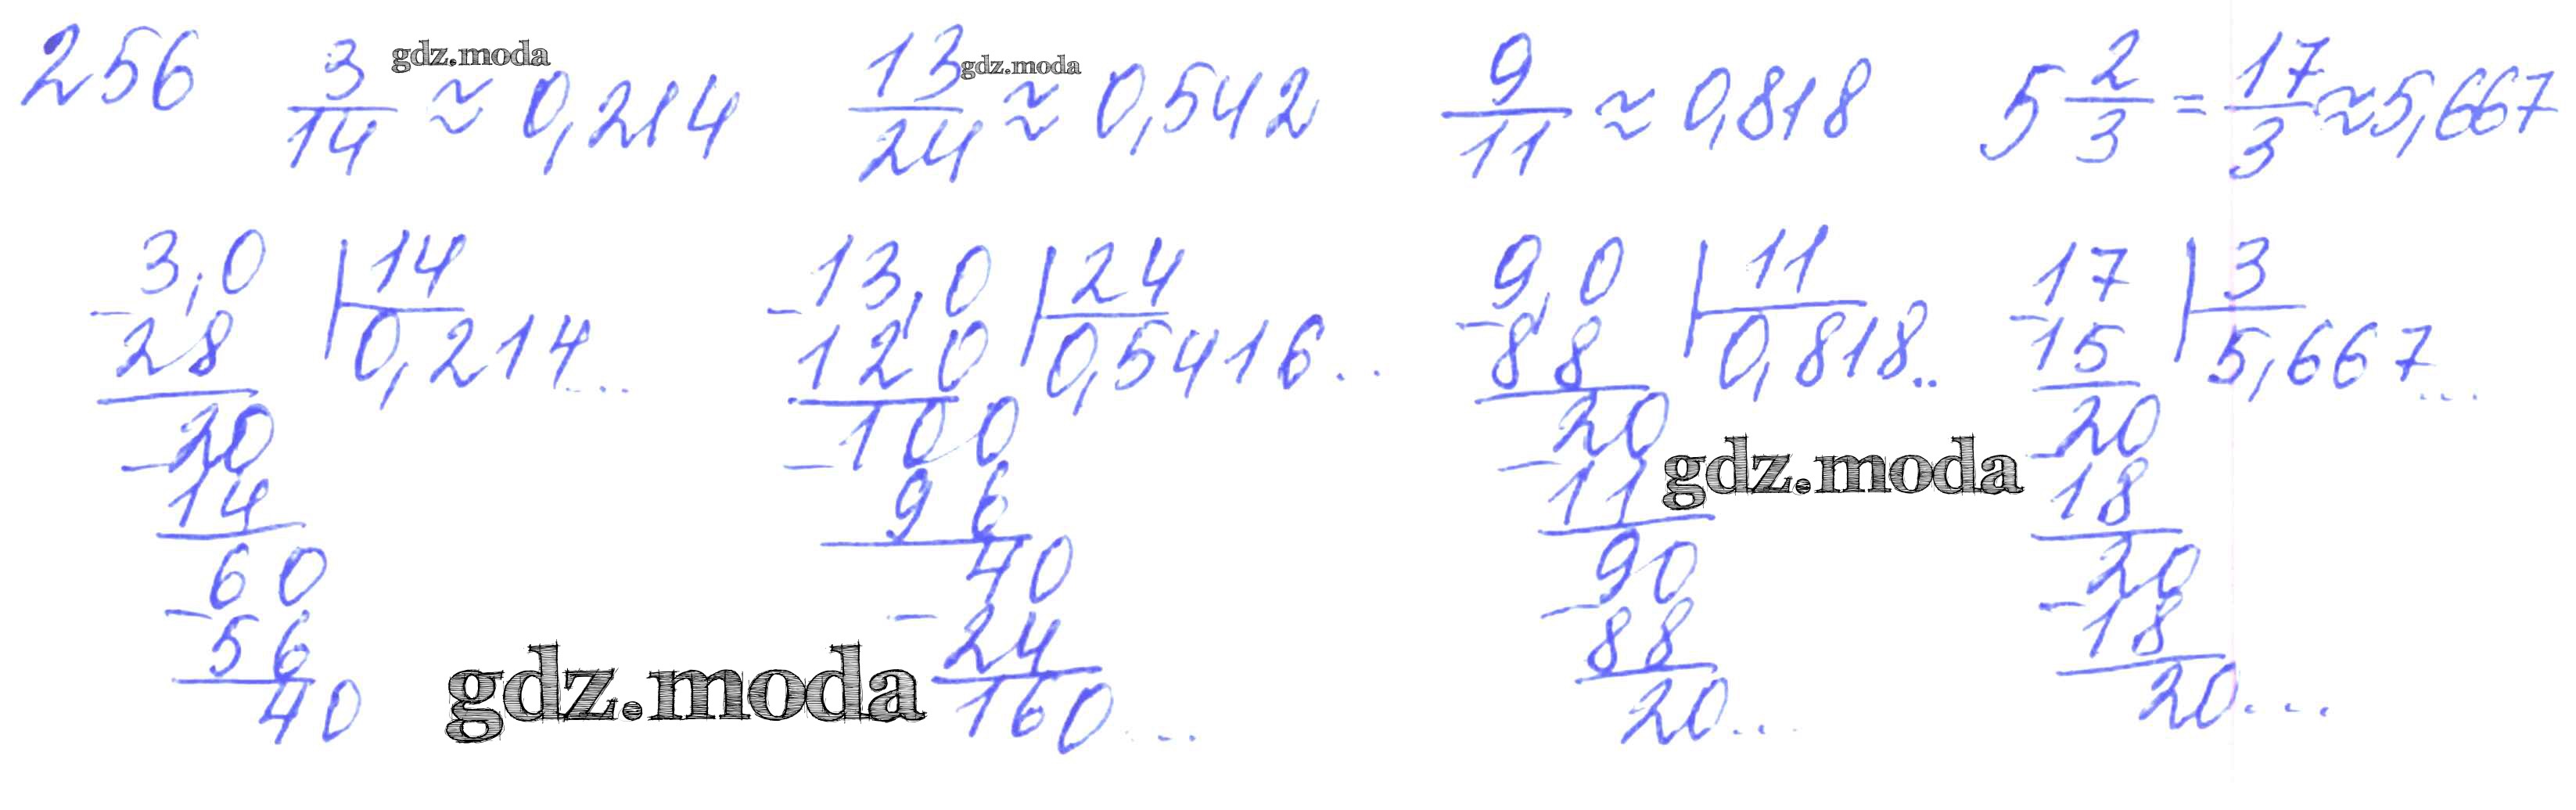 256 3/14 ≈ 0,214 13/24 ≈ 0,542 9/11 ≈ 0,818 5 2/3 = 17/3 ≈ 5,667
gdz.moda gdz.moda
3,0 | 14 13,0 | 24 9,0 | 11 17 | 3
- 28 0,214... - 120 0,5416.. - 88 0,818.. - 15 5,667...
20 100 20 20
- 14 - 96 - 11 - 18
gdz.moda
60 40 90 20
- 56 - 24 - 88 - 18
40 160... 20... 20...
gdz.moda